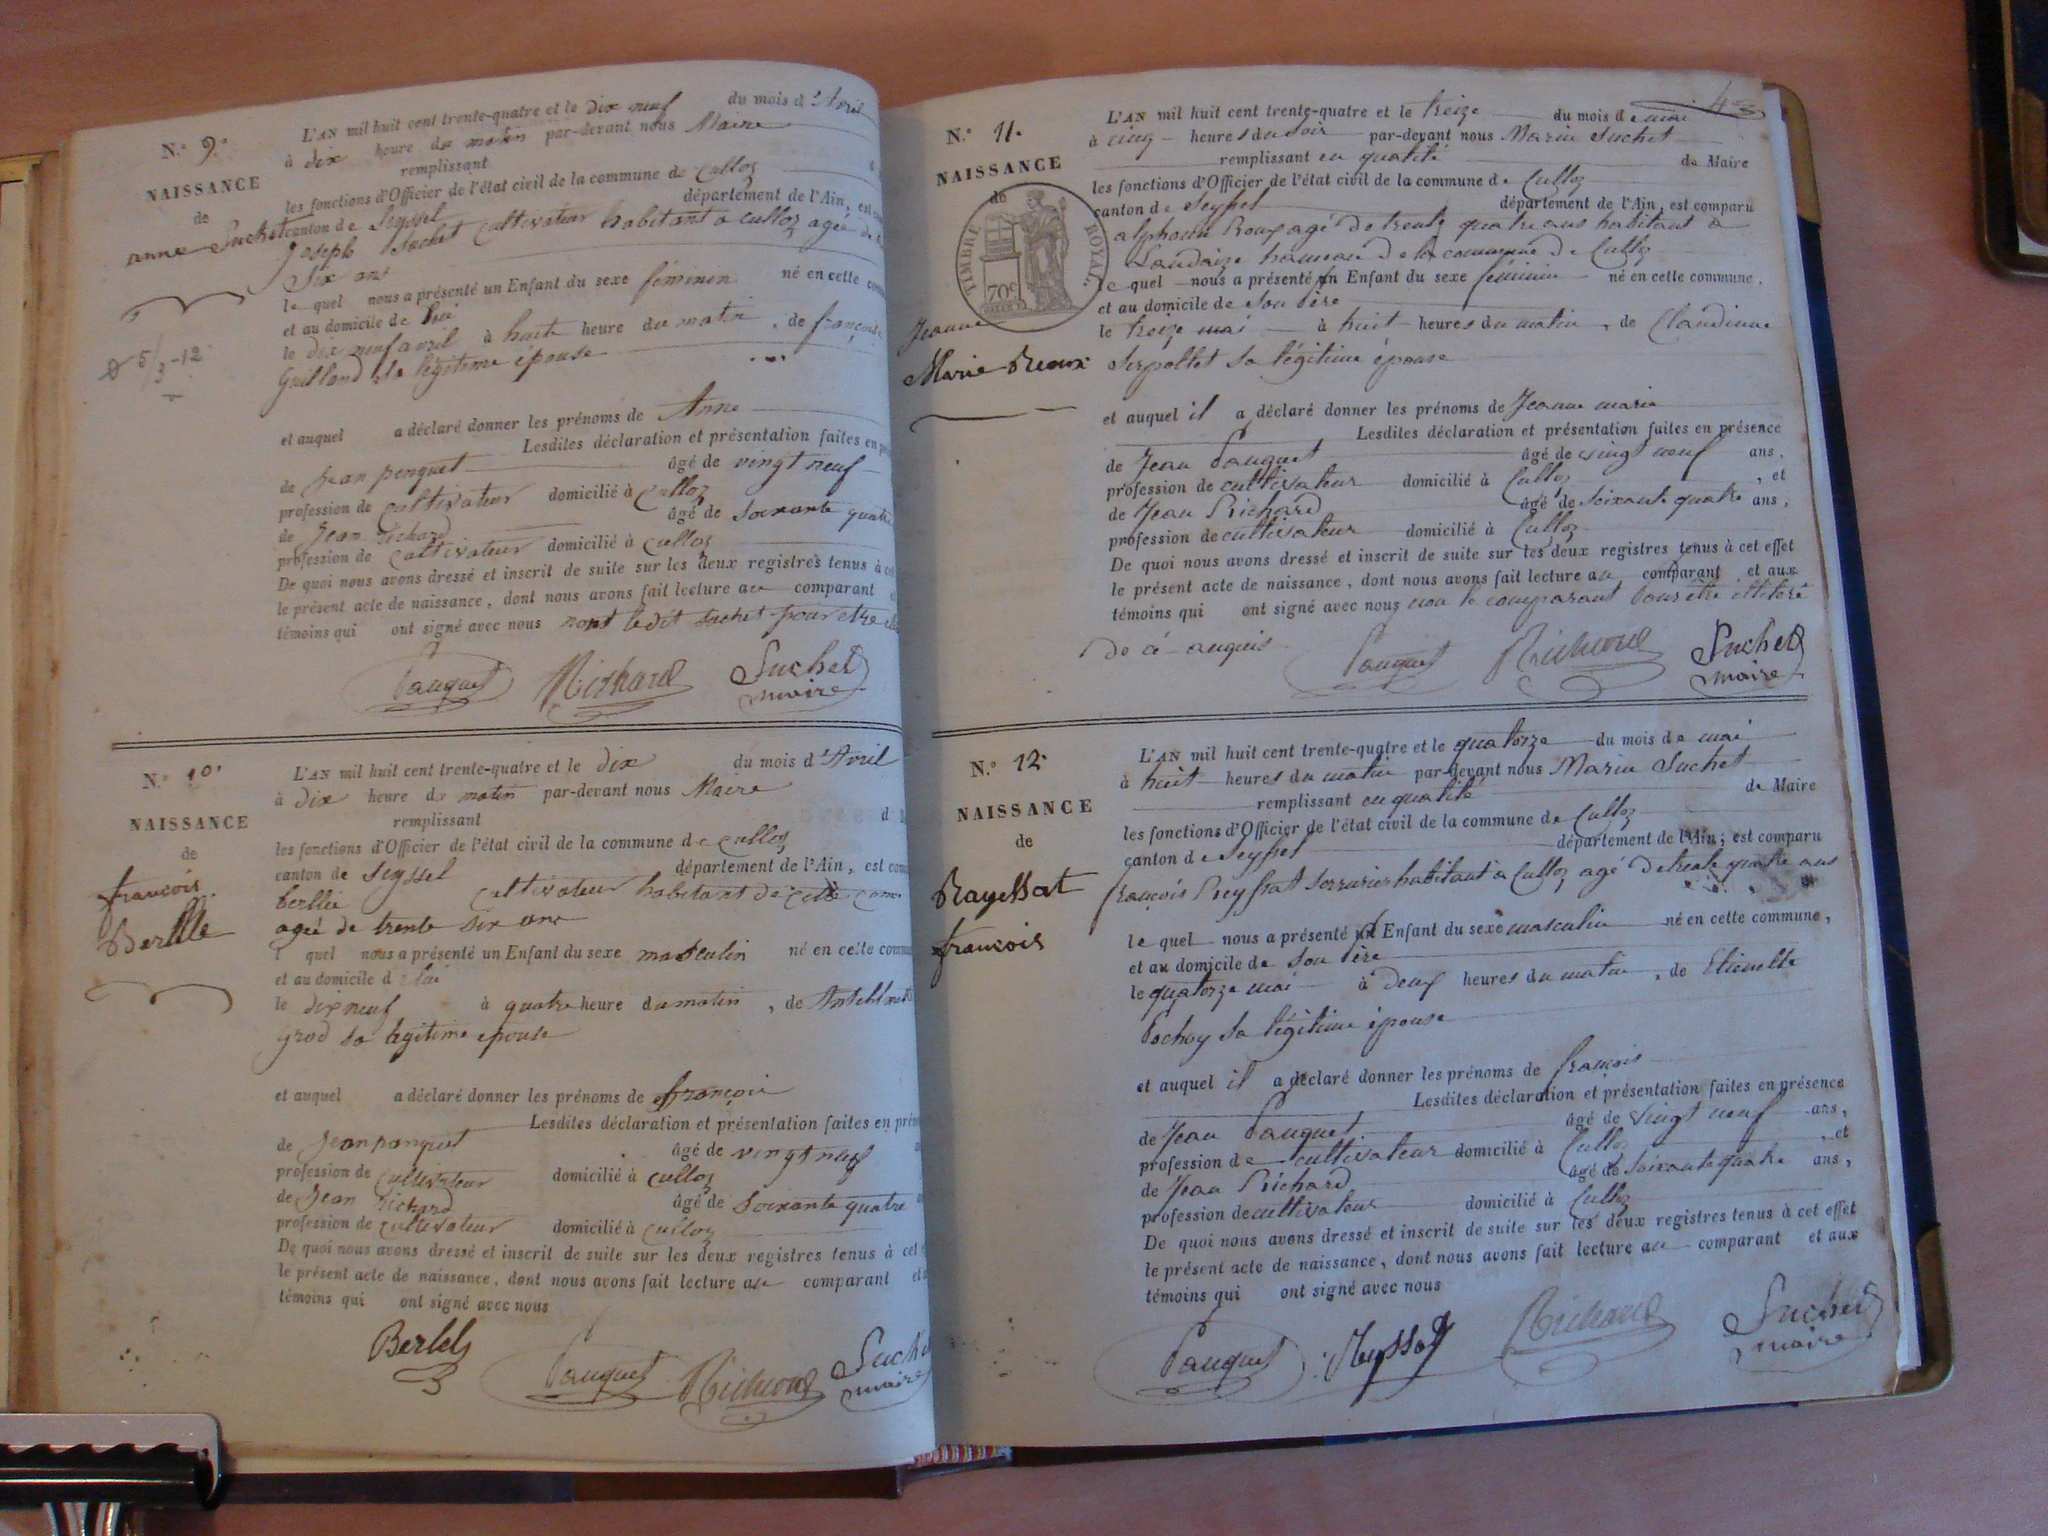 N.° 9.°
NAISSANCE
de
anne Suchet
L'AN mil huit cent trente-quatre et le dix neuf du mois d'Avril
à dix heure de matin par-devant nous Maire
remplissant
les fonctions d'Officier de l'état civil de la commune de Culloz
canton de Seyssel département de l'Ain, est
Joseph Suchet Cultivateur habitant a culloz agée de
Six ans
le quel nous a présenté un Enfant du sexe féminen né en cette
et au domicile de lui
le dix neuf avril à huite heure du matin, de françoise
Guilland sa légitime épouse
et auquel a déclaré donner les prénoms de Anne
Lesdites déclaration et présentation faites en
de Jean panquet âgé de vingt neuf
profession de Cultivateur domicilié à Culloz
de Jean Richard âgé de soixante quatre
profession de Cultivateur domicilié à Culloz
De quoi nous avons dressé et inscrit de suite sur les deux registres tenus à
le présent acte de naissance, dont nous avons fait lecture au comparant
témoins qui ont signé avec nous nont ledit suchet pour etre
Pauquet Richard Suchet
maire
N.° 10.
NAISSANCE
de
françois
Berllie
L'AN mil huit cent trente-quatre et le dix du mois d'Avril
à dix heure de matin par-devant nous Maire
remplissant
les fonctions d'Officier de l'état civil de la commune de Culloz
canton de Seyssel département de l'Ain, est
berllie Cultivateur habitant de cette
ageé de trente six ans
l quel nous a présenté un Enfant du sexe masculin né en cette
et au domicile d lui
le dix neuf à quatre heure du matin, de
grod sa legitime epouse
et auquel a déclaré donner les prénoms de françois
Lesdites déclaration et présentation faites en
de Jean panquet âgé de vingt neuf
profession de Cultivateur domicilié à Culloz
de Jean Richard âgé de soixante quatre
profession de Cultivateur domicilié à Culloz
De quoi nous avons dressé et inscrit de suite sur les deux registres tenus à cet
le présent acte de naissance, dont nous avons fait lecture au comparant et
témoins qui ont signé avec nous
Pauquet Richard
maire
N.° 11.
NAISSANCE
de
TIMBRE ROYAL
70c
Jeanne
Marie Roux
L'AN mil huit cent trente-quatre et le treize du mois de mai
à cinq heures du soir par-devant nous Marin Suchet
remplissant en qualité de Maire
les fonctions d'Officier de l'état civil de la commune de Culloz
canton de Seyssel département de l'Ain, est comparu
alphonse Roux agé de trente quatre ans habitant à
Landaize hameau de la commune de Culloz
le quel nous a présenté un Enfant du sexe féminin né en cette commune,
et au domicile de son Père
le treize mai à huit heures du matin, de Claudine
Serpollet sa légitime épouse
et auquel il a déclaré donner les prénoms de Jeanne marie
Lesdites déclaration et présentation faites en présence
de Jean Pauquet âgé de vingt neuf ans,
profession de cultivateur domicilié à Culloz, et
de Jean Richard âgé de soixante quatre ans,
profession de cultivateur domicilié à Culloz
De quoi nous avons dressé et inscrit de suite sur les deux registres tenus à cet effet
le présent acte de naissance, dont nous avons fait lecture au comparant et aux
témoins qui ont signé avec nous non le comparant Pour être illitéré
De ce enquis
Pauquet Richard Suchet
maire
N.° 12.
NAISSANCE
de
Rayessat
françois
L'AN mil huit cent trente-quatre et le quatorze du mois de mai
à huit heures du matin par-devant nous Marin Suchet
remplissant en qualité de Maire
les fonctions d'Officier de l'état civil de la commune de Culloz
canton de Seyssel département de l'Ain, est comparu
françois Reyssat Serrurier habitant à Culloz agé de trente quatre ans
le quel nous a présenté un Enfant du sexe masculin né en cette commune,
et au domicile de son Père
le quatorze mai à deux heures du matin, de Etienette
Pochoy sa légitime épouse
et auquel il a déclaré donner les prénoms de françois
Lesdites déclaration et présentation faites en présence
de Jean Pauquet âgé de vingt neuf ans,
profession de cultivateur domicilié à Culloz, et
de Jean Richard âgé de soixante quatre ans,
profession de cultivateur domicilié à Culloz
De quoi nous avons dressé et inscrit de suite sur les deux registres tenus à cet effet
le présent acte de naissance, dont nous avons fait lecture au comparant et aux
témoins qui ont signé avec nous
Pauquet Reyssat Richard Suchet
maire